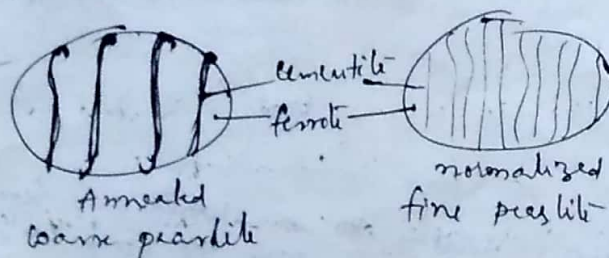 cementite
ferrite
Annealed
coarse pearlite
normalized
fine pearlite